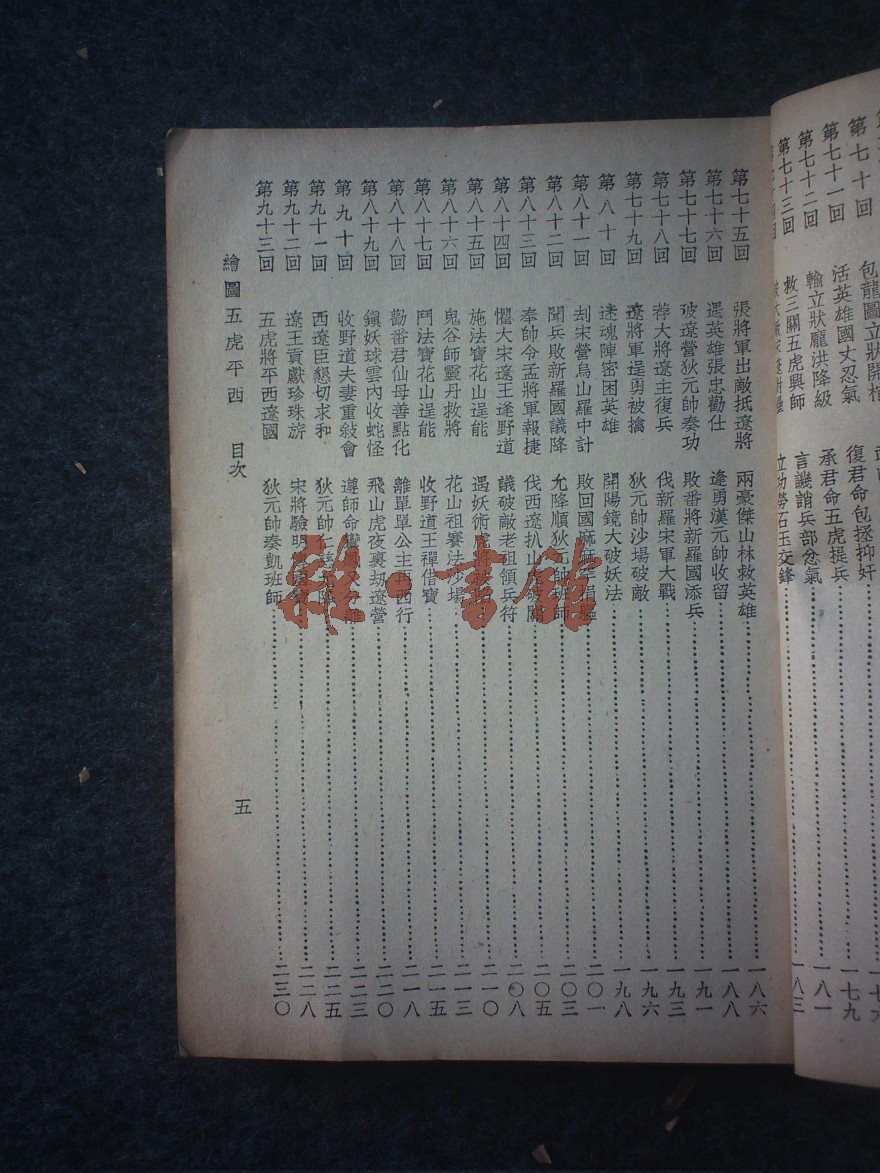 第七十回
包龍圖立狀開棺
復君命包拯抑奸
一七九
第七十一回
活英雄國丈忍氣
承君命五虎提兵
一八一
第七十二回
輸立狀龐洪降級
言譏誚兵部忿氣
一八三
第七十三回
救三關五虎興師
立功勞石玉交鋒
第七十五回 張將軍出敵抵遼將 兩豪傑山林救英雄 一八六
第七十六回 遇英雄張忠勸仕 逢勇漢元帥收留 一八八
第七十七回 破遼營狄元帥奏功 敗番將新羅國添兵 一九一
第七十八回 葬大將遼主復兵 伐新羅宋軍大戰 一九三
第七十九回 遼將軍逞勇被擒 狄元帥沙場破敵 一九六
第八十回 迷魂陣密困英雄 開陽鏡大破妖法 一九八
第八十一回 刦宋營烏山羅中計 敗回國麻 二〇一
第八十二回 聞兵敗新羅國議降 允降順狄元帥班師 二〇三
第八十三回 奉帥令孟將軍報捷 伐西遼扒山 二〇五
第八十四回 懼大宋遼王逢野道 議破敵老祖領兵符 二〇八
第八十五回 施法寶花山逞能 遇妖術虎將 二一〇
第八十六回 鬼谷師靈丹救將 花山祖賽法沙場 二一三
第八十七回 鬥法寶花山逞能 收野道王禪借寶 二一五
第八十八回 勸番君仙母善點化 離單單公主再西行 二一八
第八十九回 鎮妖球雲內收蛇怪 飛山虎夜裏劫遼營 二二〇
第九十回 收野道夫妻重敍會 遵師命 二二三
第九十一回 西遼臣懇切求和 狄元帥仁慈 二二五
第九十二回 遼王貢獻珍珠旂 宋將驗明 二二八
第九十三回 五虎將平西遼國 狄元帥奏凱班師 二三〇
繪圖五虎平西 目次
五
雅·書館